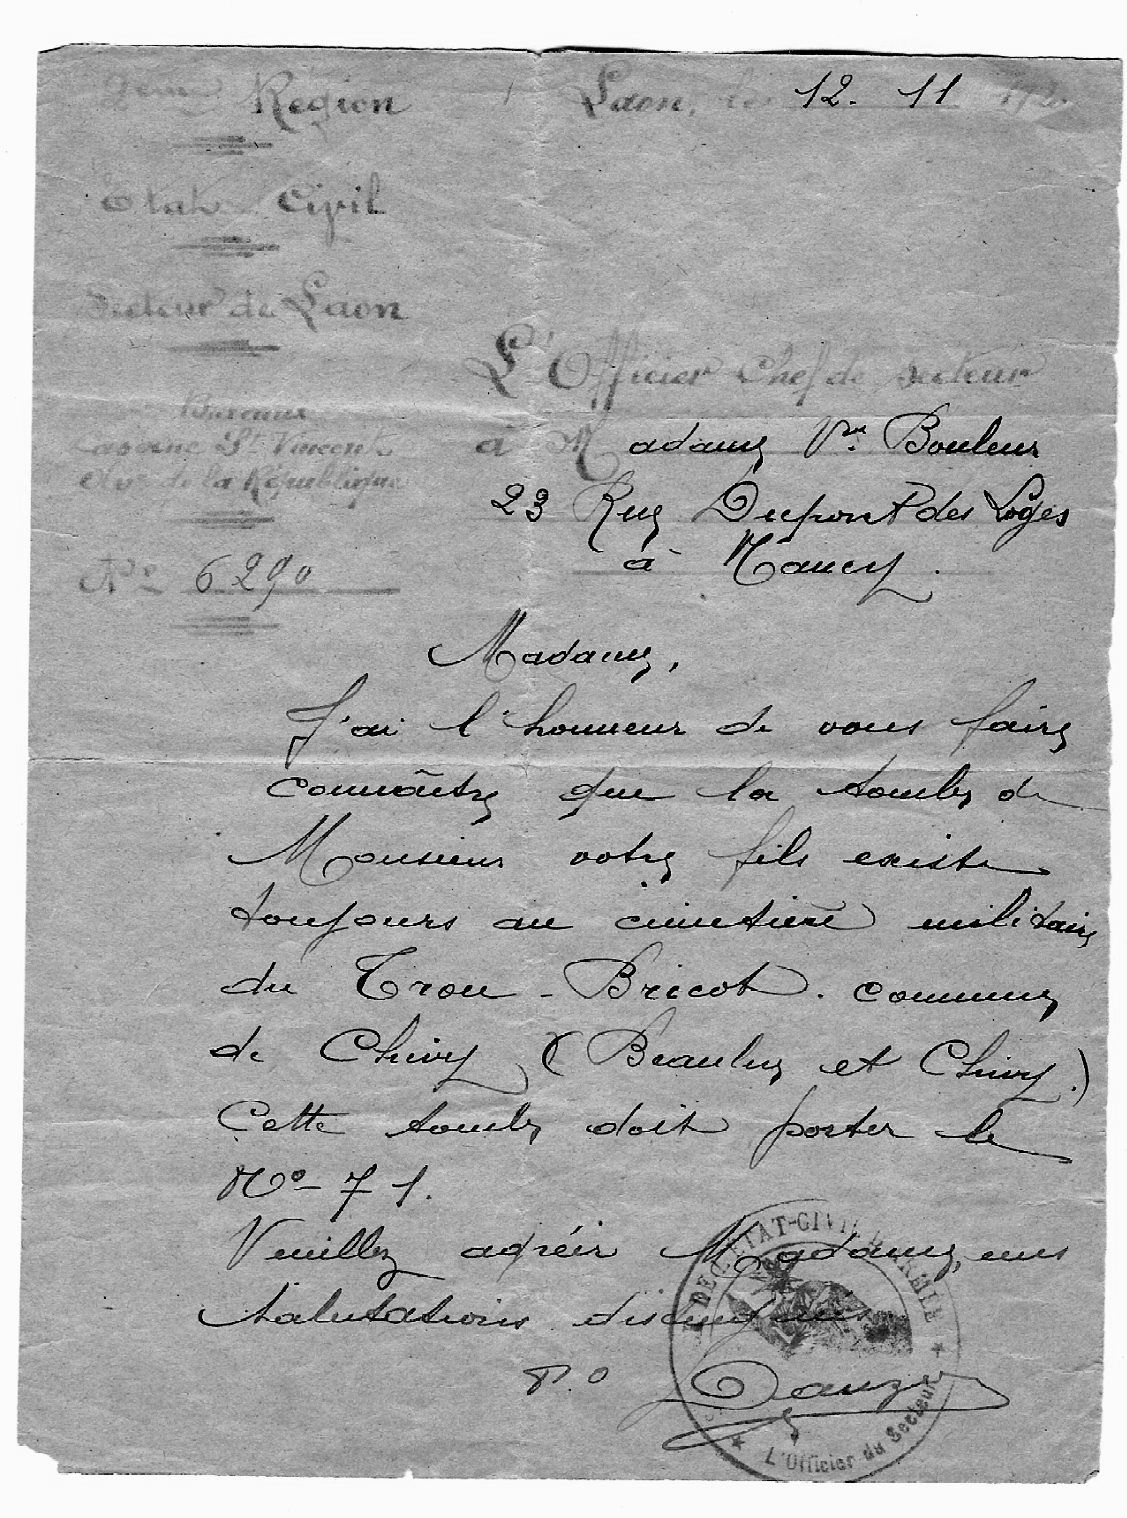 2ème Région
Laon, le 12. 11 192
Etat Civil
Secteur de Laon
L'Officier Chef de Secteur
Bureaux
Caserne St Vincent
à Madame Vve Bouleur
de la République
23 Rue Dupont des Loges
à Nancy.
No 6290
Madame,
J'ai l'honneur de vous faire
connaître que la tombe de
Monsieur votre fils existe
toujours au cimetière militaire
du Trou-Bricot. commune
de Chivy (Beaulne et Chivy.)
Cette tombe doit porter le
No 71.
Veuillez agréer Madame, mes
salutations distinguées
P.O
DE L'ETAT-CIVIL
L'Officier du Secteur